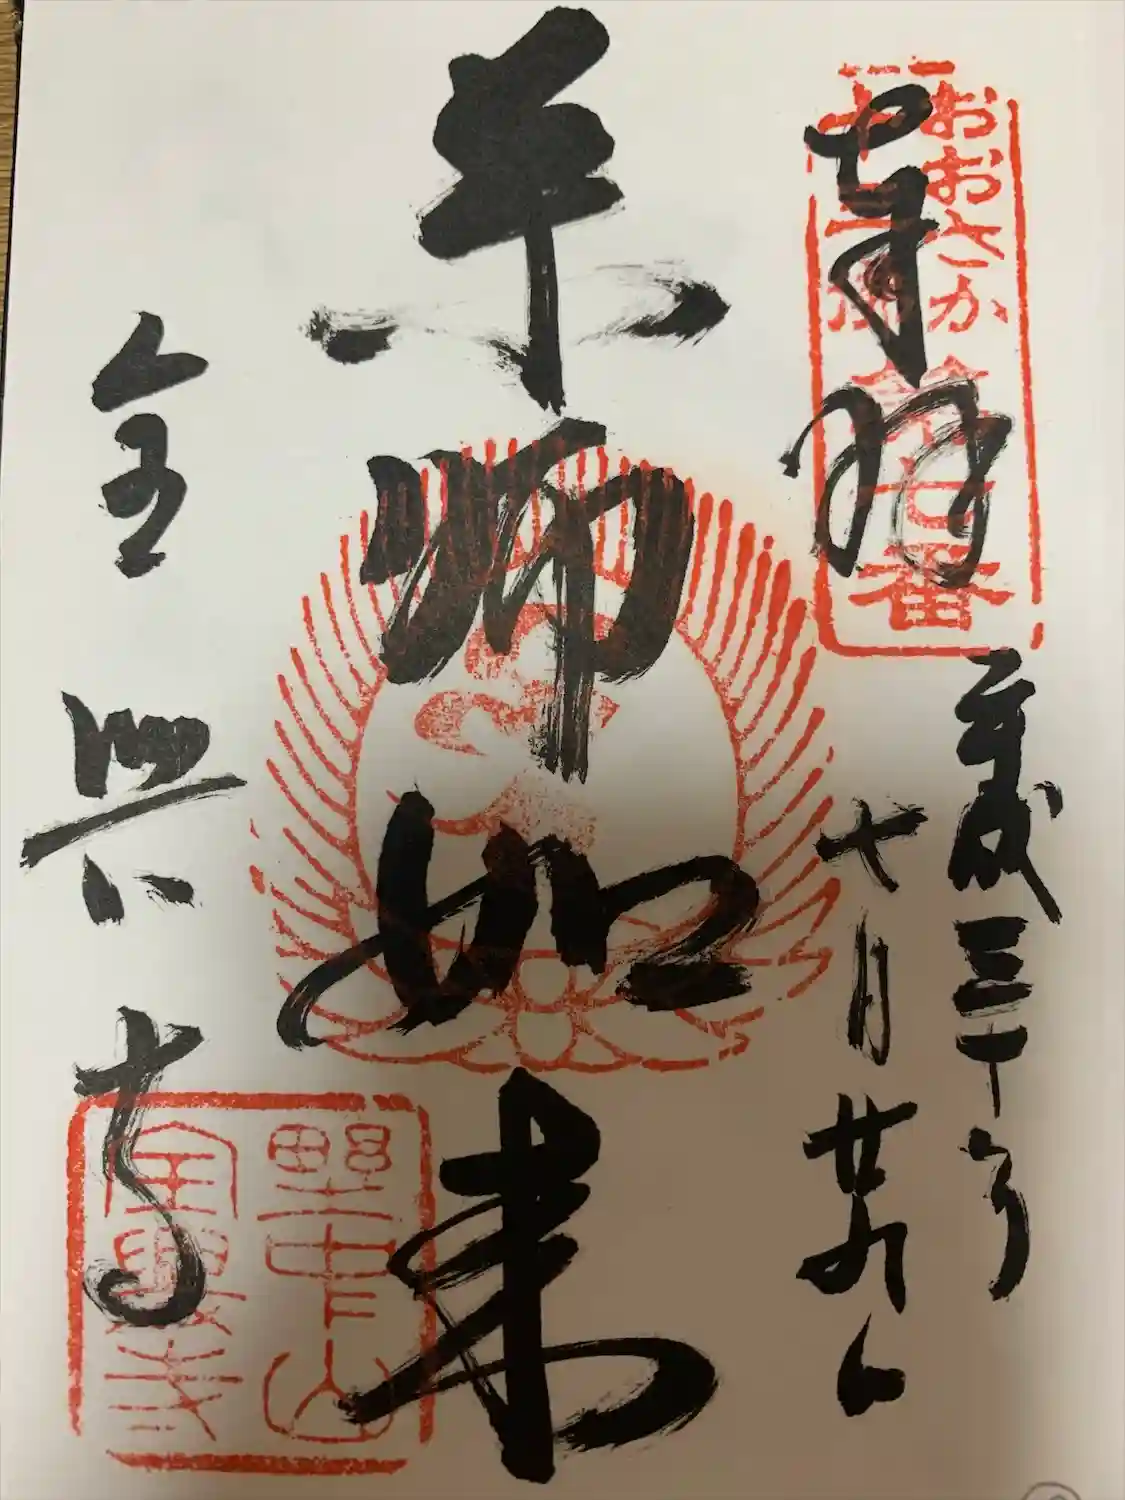 奉拝
おおさか
十三佛
第七番
平成三十年
七月廿九日
薬師如来
全興寺
野中山
全興寺